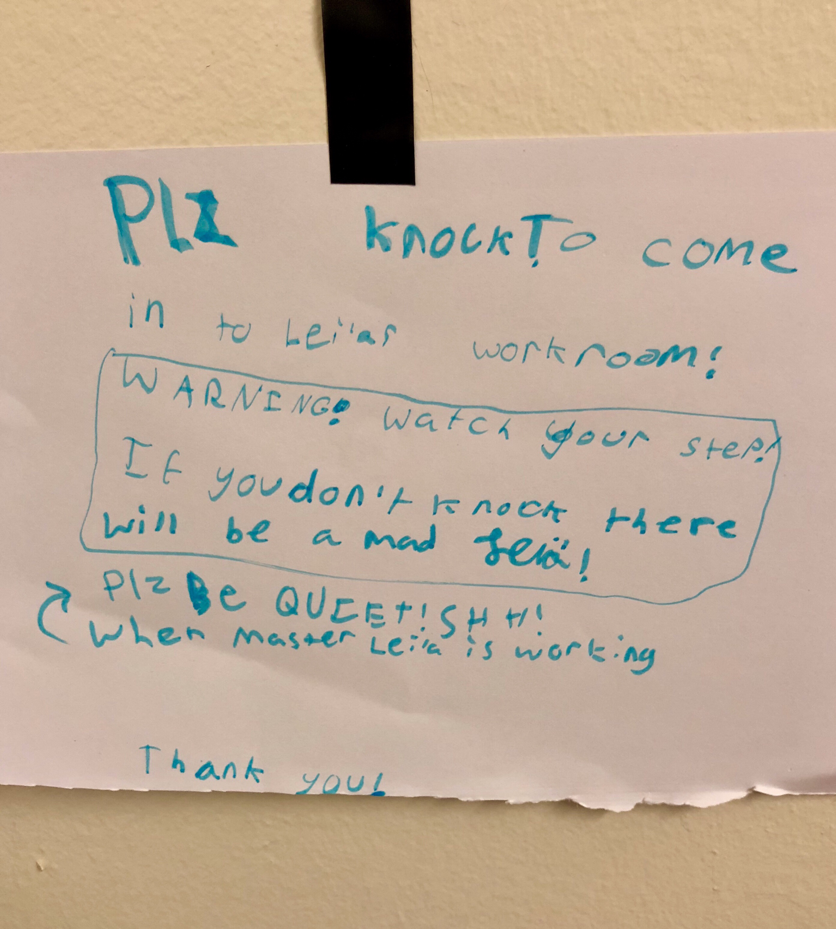 Plz knock To come
in to Leïas workroom!
WARNING! watch your step!
If you don't knock there
will be a mad Leïa!
Plz Be QUIEt! SHH!
when master Leïa is working
Thank you!